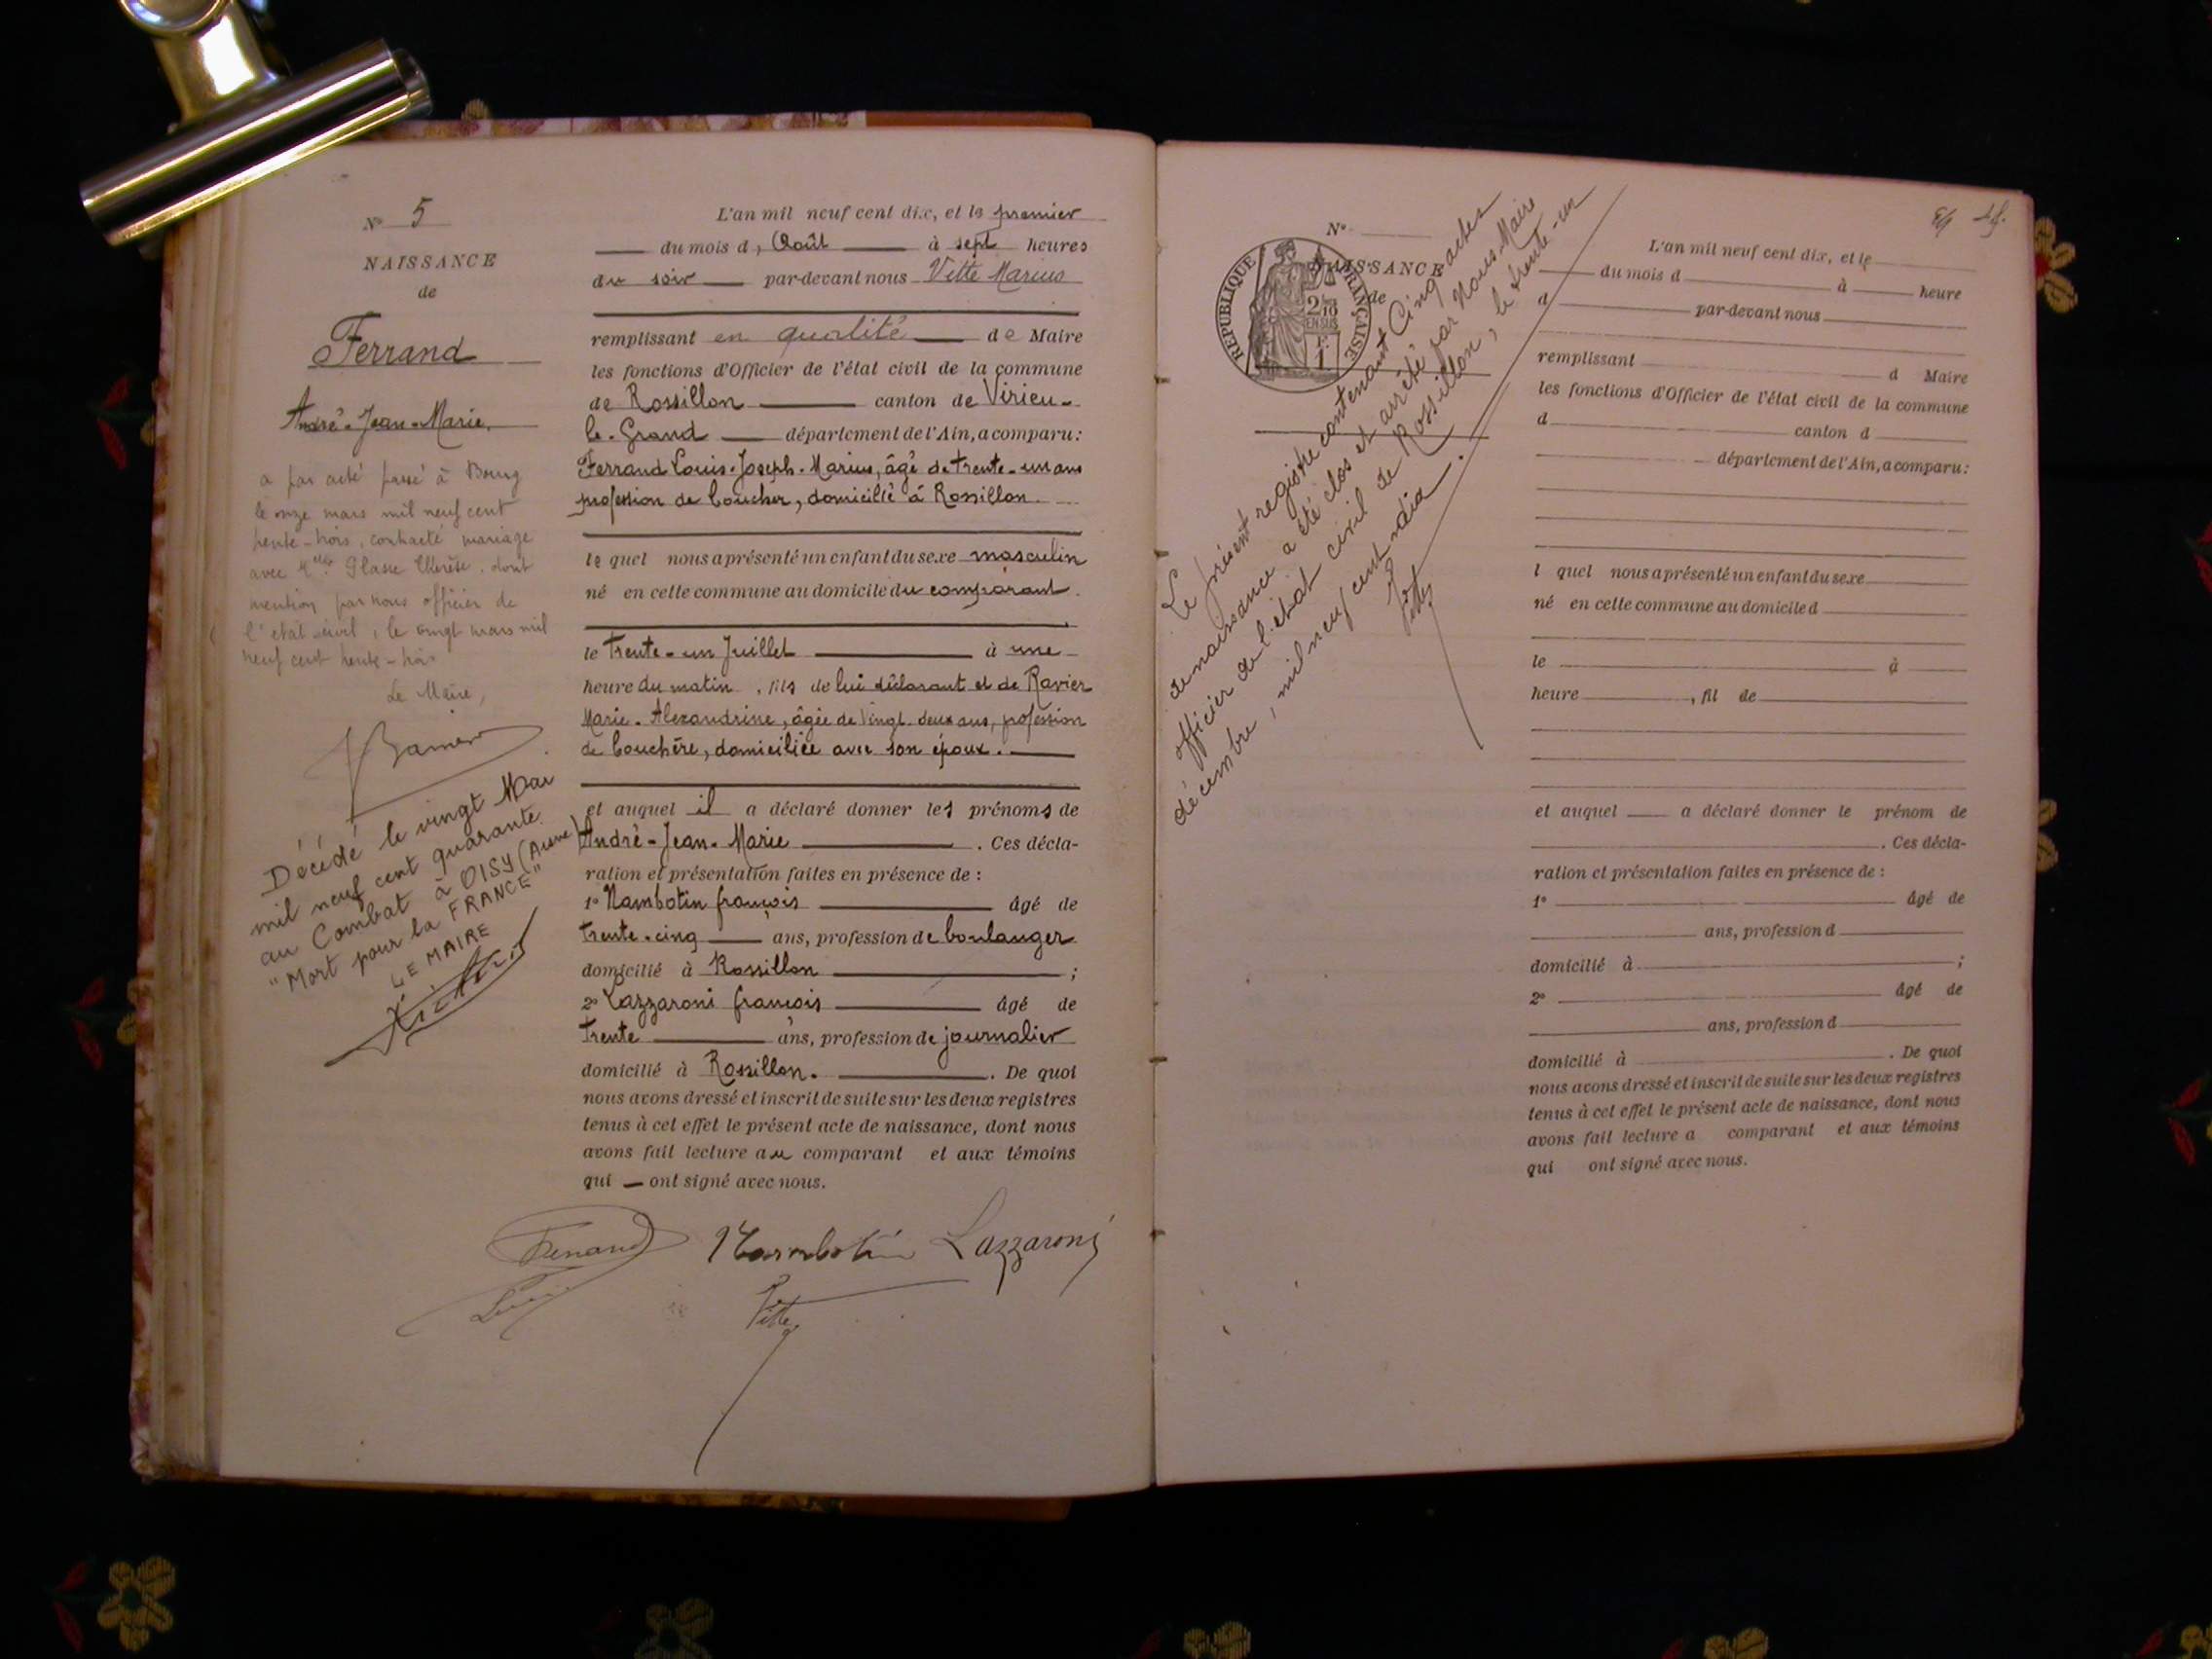 N° 5
NAISSANCE
de
Ferrand
André-Jean-Marie.
a par acte passé à Bourg
le onze mars mil neuf cent
trente-trois, contracté mariage
avec Melle Thérèse. dont
mention par nous officier de
l'état civil, le vingt mars mil
neuf cent trente-trois
Le Maire,
Décédé le vingt Mai
mil neuf cent quarante
au Combat à OISY (Aisne)
"Mort pour la FRANCE"
LE MAIRE
L'an mil neuf cent dix, et le premier
du mois d'Août à sept heures
du soir par-devant nous Vette Marius
remplissant en qualité de Maire
les fonctions d'Officier de l'état civil de la commune
de Rossillon canton de Virieu-
le-Grand département de l'Ain, a comparu:
Ferrand Louis-Joseph-Marius, âgé de trente-un ans
profession de boucher, domicilié à Rossillon.
lequel nous a présenté un enfant du sexe masculin
né en cette commune au domicile du comparant.
le trente-un Juillet à une
heure du matin, fils de lui déclarant et de Ravier
Marie-Alexandrine, âgée de vingt-deux ans, profession
de bouchère, domiciliée avec son époux.
et auquel il a déclaré donner les prénoms de
André-Jean-Marie. Ces décla-
ration et présentation faites en présence de :
1° Nambotin françois âgé de
trente-cinq ans, profession de boulanger
domicilié à Rossillon ;
2° Lazzaroni françois âgé de
trente ans, profession de journalier
domicilié à Rossillon. De quoi
nous avons dressé et inscrit de suite sur les deux registres
tenus à cet effet le présent acte de naissance, dont nous
avons fait lecture au comparant et aux témoins
qui ont signé avec nous.
Ferrand Nambotin Lazzaroni
Louis
Vette
8/9 48.
N°
NAISSANCE
de
RÉPUBLIQUE FRANÇAISE
2/10
EN SUS
1
Le présent registre contenant Cinq actes
de naissance a été clos et arrêté par Nous Maire
officier de l'état civil de Rossillon, le trente-un
décembre, mil neuf cent mil dix.
Vette
L'an mil neuf cent dix, et le
du mois d à heure
d par-devant nous
remplissant d Maire
les fonctions d'Officier de l'état civil de la commune
d canton d
département de l'Ain, a comparu:
l quel nous a présenté un enfant du sexe
né en cette commune au domicile d
le à
heure , fil de
et auquel a déclaré donner le prénom de
. Ces décla-
ration et présentation faites en présence de :
1° âgé de
ans, profession d
domicilié à ;
2° âgé de
ans, profession d
domicilié à . De quoi
nous avons dressé et inscrit de suite sur les deux registres
tenus à cet effet le présent acte de naissance, dont nous
avons fait lecture a comparant et aux témoins
qui ont signé avec nous.